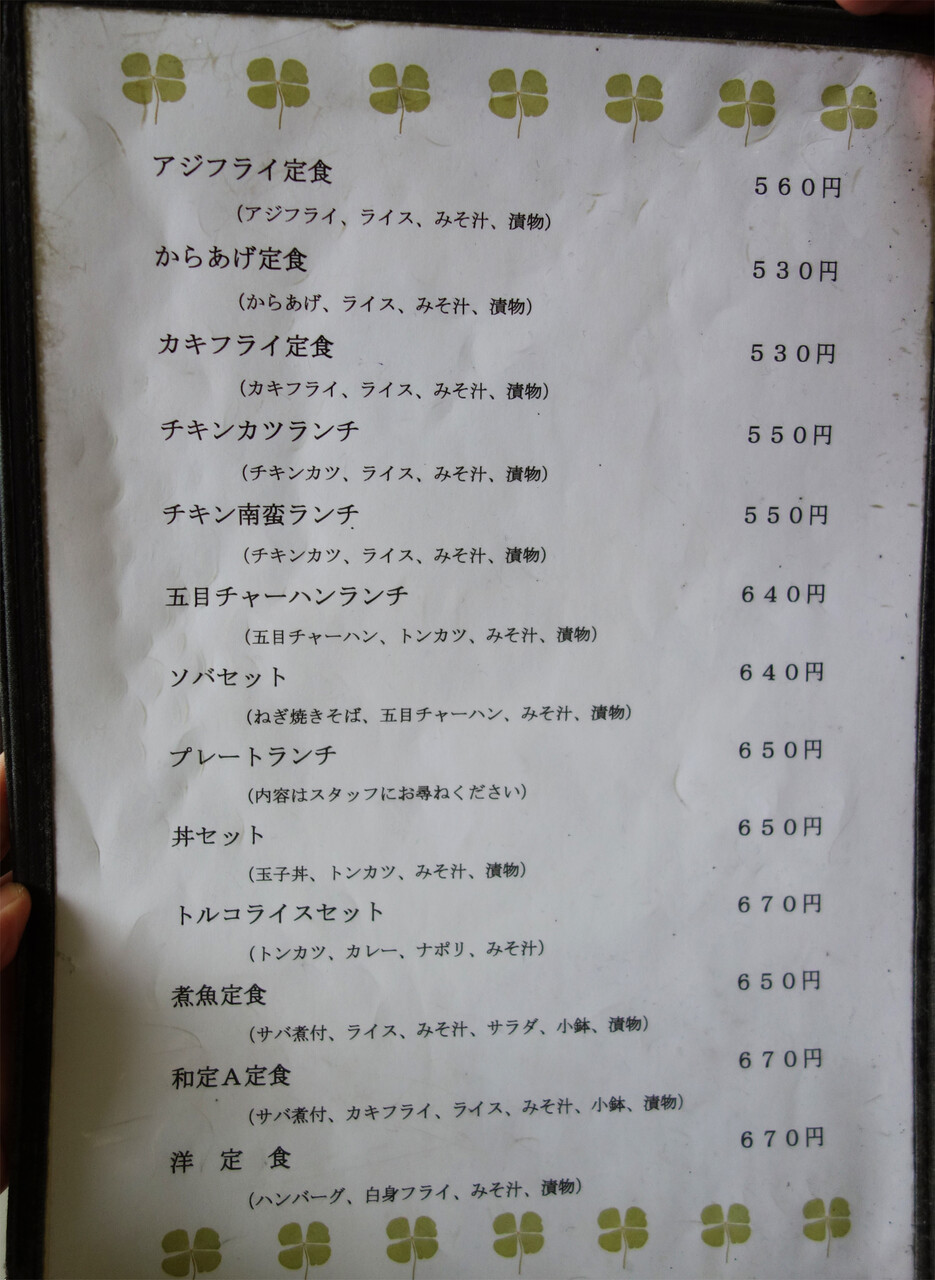 アジフライ定食 ５６０円
(アジフライ、ライス、みそ汁、漬物)
からあげ定食 ５３０円
(からあげ、ライス、みそ汁、漬物)
カキフライ定食 ５３０円
(カキフライ、ライス、みそ汁、漬物)
チキンカツランチ ５５０円
(チキンカツ、ライス、みそ汁、漬物)
チキン南蛮ランチ ５５０円
(チキンカツ、ライス、みそ汁、漬物)
五目チャーハンランチ ６４０円
(五目チャーハン、トンカツ、みそ汁、漬物)
ソバセット ６４０円
(ねぎ焼きそば、五目チャーハン、みそ汁、漬物)
プレートランチ ６５０円
(内容はスタッフにお尋ねください)
丼セット ６５０円
(玉子丼、トンカツ、みそ汁、漬物)
トルコライスセット ６７０円
(トンカツ、カレー、ナポリ、みそ汁)
煮魚定食 ６５０円
(サバ煮付、ライス、みそ汁、サラダ、小鉢、漬物)
和定Ａ定食 ６７０円
(サバ煮付、カキフライ、ライス、みそ汁、小鉢、漬物)
洋　定　食 ６７０円
(ハンバーグ、白身フライ、みそ汁、漬物)